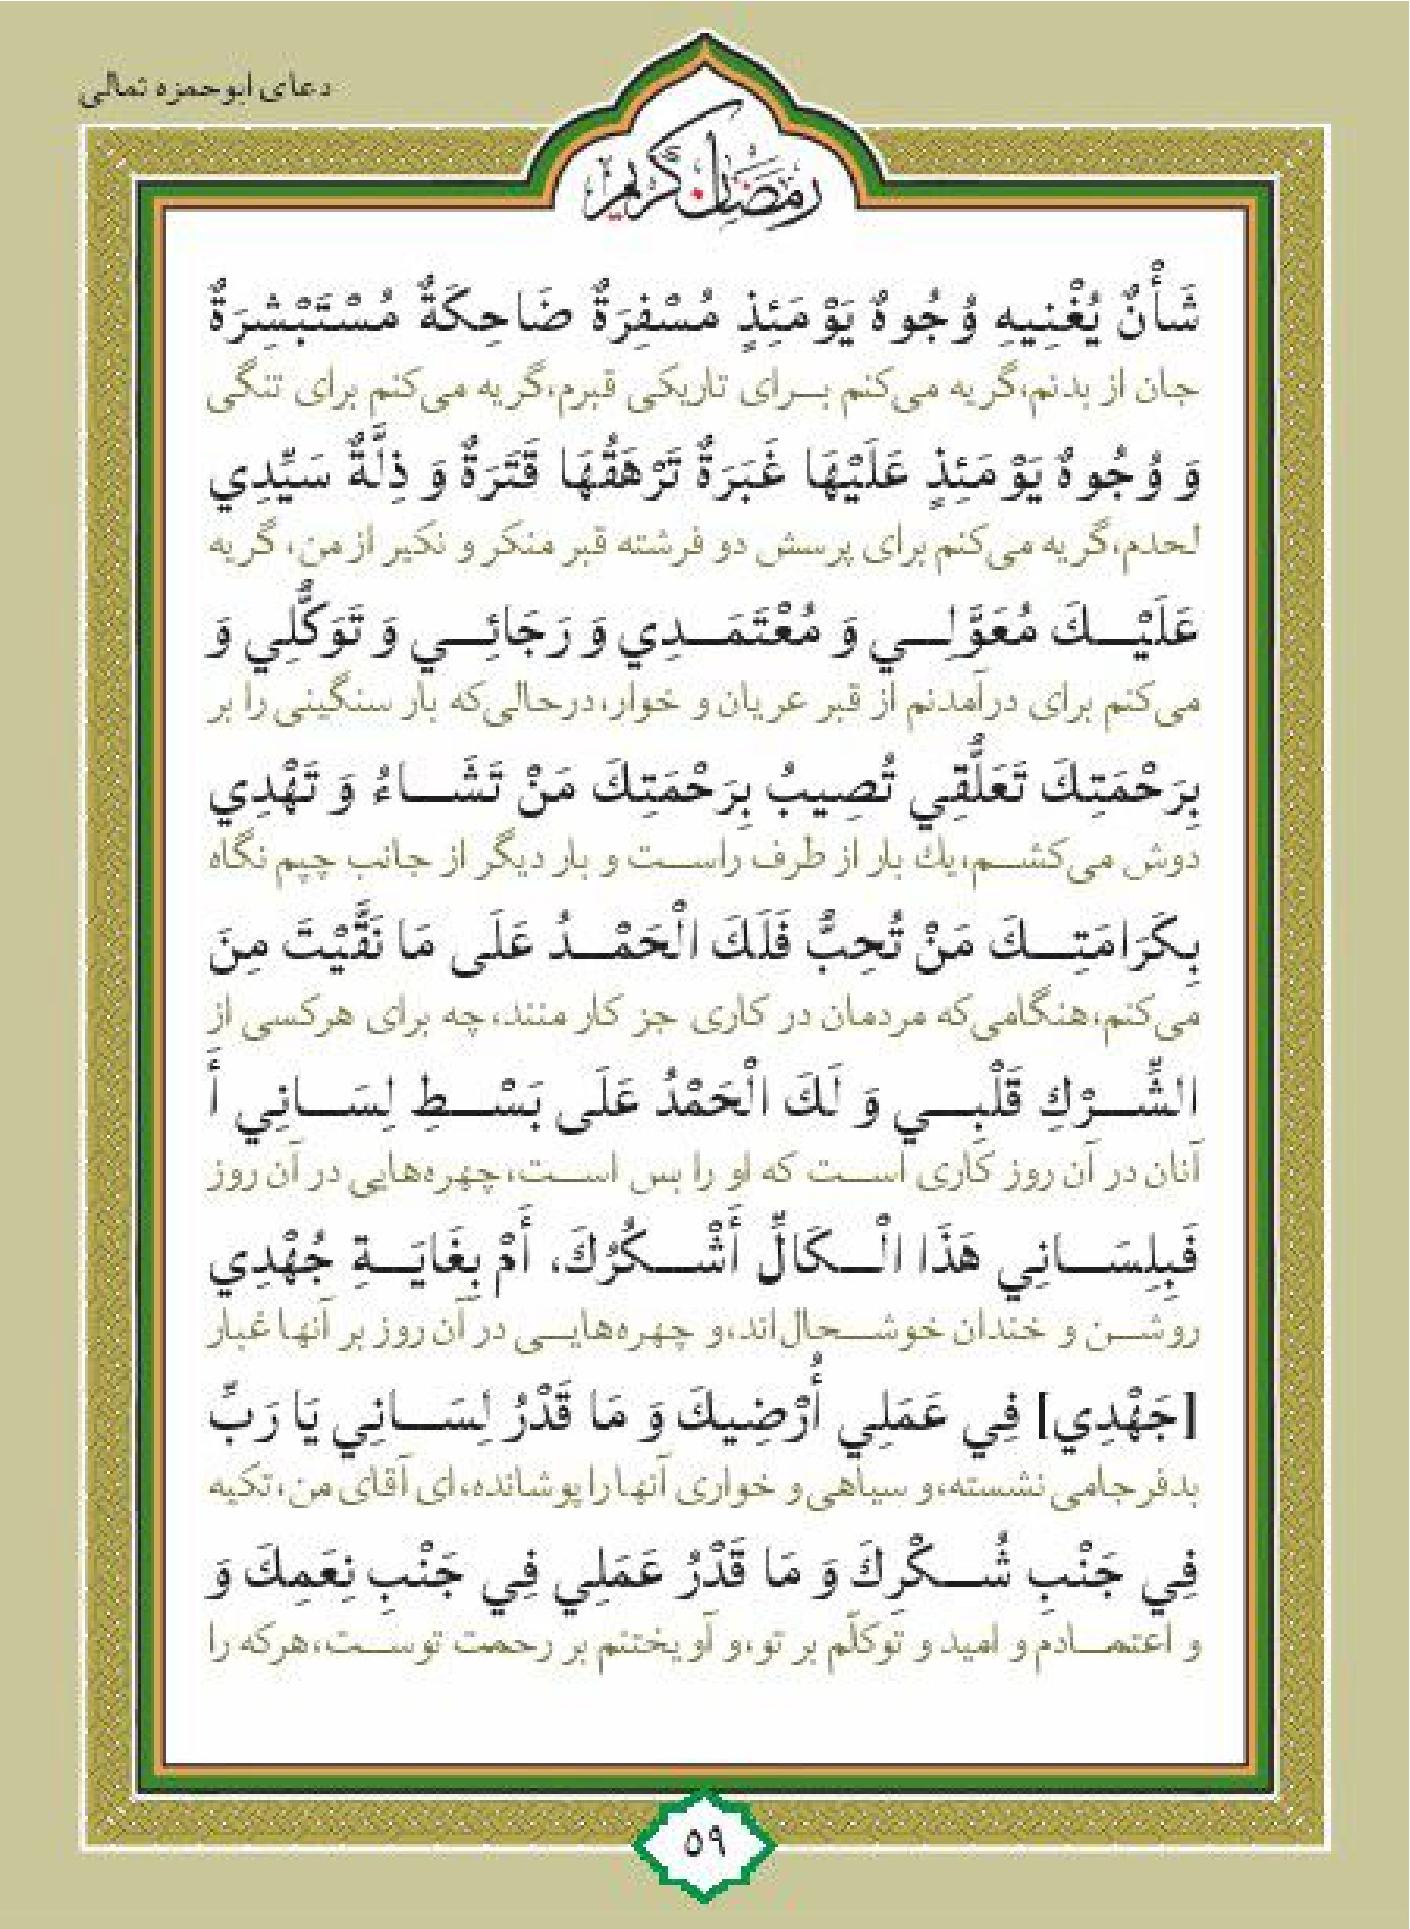 دعای ابوحمزه ثمالی
رمضان کریم
شَأْنٌ يُغْنِيهِ وُجُوهٌ يَوْمَئِذٍ مُسْفِرَةٌ ضَاحِكَةٌ مُسْتَبْشِرَةٌ
جان از بدنم،گریه می‌کنم بـرای تاریکی قبرم،گریه می‌کنم برای تنگی
وَ وُجُوهٌ يَوْمَئِذٍ عَلَيْهَا غَبَرَةٌ تَرْهَقُهَا قَتَرَةٌ وَ ذِلَّةٌ سَيِّدِي
لحدم،گریه می‌کنم برای پرسش دو فرشته قبر منکر و نکیر از من، گریه
عَلَيْـكَ مُعَوَّلِـي وَ مُعْتَمَـدِي وَ رَجَائِـي وَ تَوَكُّلِي وَ
می‌کنم برای درآمدنم از قبر عریان و خوار،درحالی‌که بار سنگینی را بر
بِرَحْمَتِكَ تَعَلُّقِي تُصِيبُ بِرَحْمَتِكَ مَنْ تَشَـاءُ وَ تَهْدِي
دوش می‌کشـم،یك بار از طرف راسـت و بار دیگر از جانب چپم نگاه
بِكَرَامَتِـكَ مَنْ تُحِبُّ فَلَكَ الْحَمْـدُ عَلَى مَا نَقَّيْتَ مِنَ
می‌کنم،هنگامی‌که مردمان در کاری جز کار منند،چه برای هرکسی از
الشِّـرْكِ قَلْبِـي وَ لَكَ الْحَمْدُ عَلَى بَسْـطِ لِسَـانِي أَ
آنان در آن روز کاری اسـت که او را بس اسـت،چهره‌هایی در آن روز
فَبِلِسَـانِي هَذَا الْـكَالِّ أَشْـكُرُكَ، أَمْ بِغَايَـةِ جُهْدِي
روشـن و خندان خوشـحال‌اند،و چهره‌هایـی در آن روز بر آنها غبار
[جَهْدِي] فِي عَمَلِي أُرْضِيكَ وَ مَا قَدْرُ لِسَـانِي يَا رَبِّ
بدفرجامی نشسته،و سیاهی و خواری آنها را پوشانده،ای آقای من،تکیه
فِي جَنْبِ شُـكْرِكَ وَ مَا قَدْرُ عَمَلِي فِي جَنْبِ نِعَمِكَ وَ
و اعتمـادم و امید و توکلّم بر تو،و آویختنم بر رحمت توسـت،هرکه را
۵۹